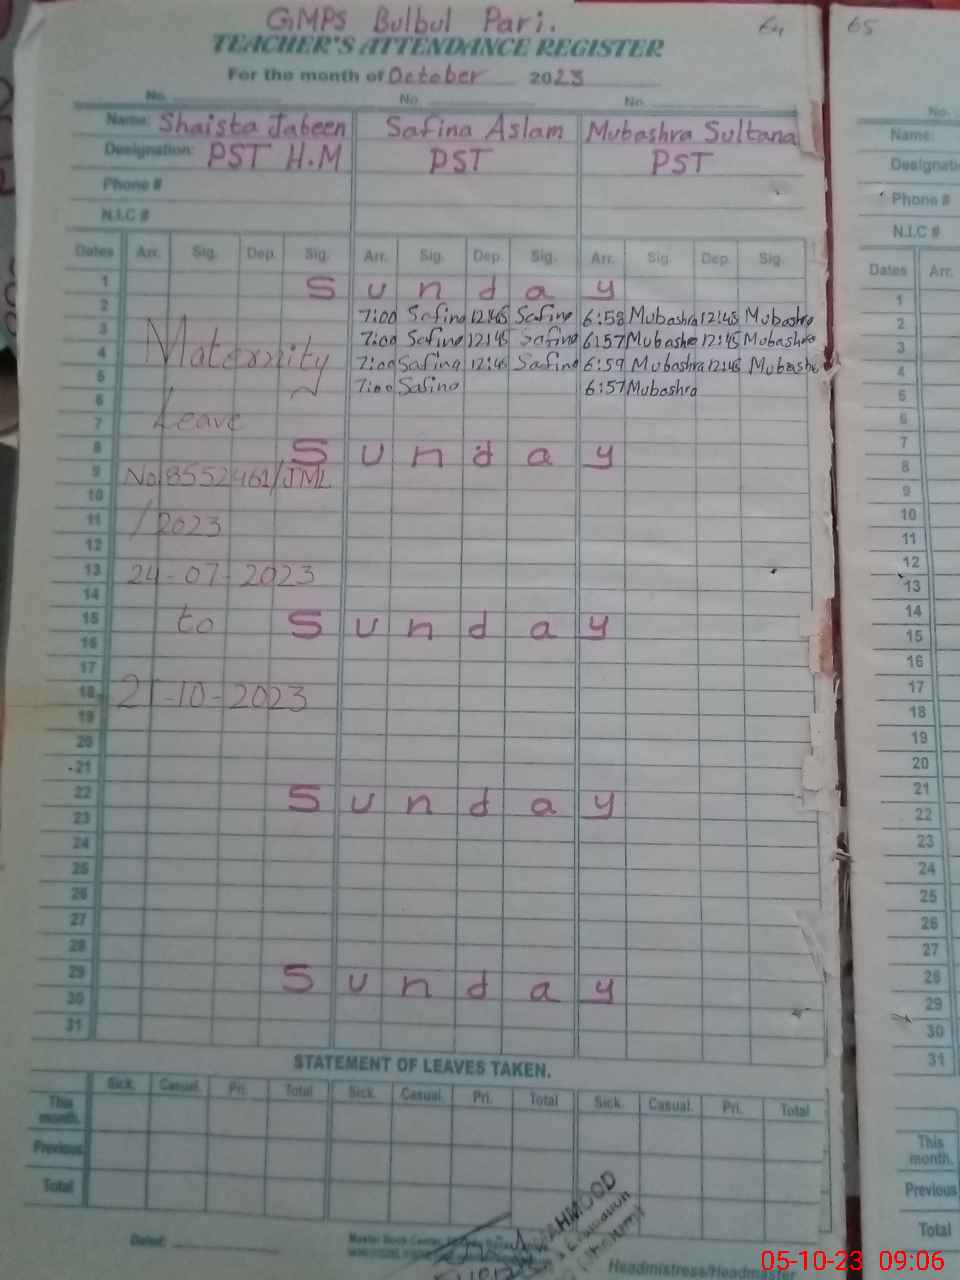 GMPS Bulbul Pari. 64 65
TEACHER'S ATTENDANCE REGISTER
For the month of October 2023
No. No. No. No.
Name: Shaista Jabeen Safina Aslam Mubashra Sultana Name:
Designation: PST H.M PST PST
Phone # Phone #
N.I.C # N.I.C #
Dates Arr. Sig. Dep. Sig. Arr. Sig. Dep. Sig. Arr. Sig. Dep. Sig. Dates Arr.
1 Sunday 1
2 7:00 Safina 12:45 Safina 6:58 Mubashra 12:45 Mubashra 2
3 Maternity 7:00 Safina 12:45 Safina 6:57 Mubashra 12:45 Mubashra 3
4 7:00 Safina 12:45 Safina 6:59 Mubashra 12:45 Mubashra 4
5 7:00 Safina 6:57 Mubashra 5
6 6
7 Leave 7
8 Sunday 8
9 No 8552461/JML 9
10 10
11 /2023 11
12 12
13 24-07-2023 13
14 14
15 to Sunday 15
16 16
17 17
18 21-10-2023 18
19 19
20 20
21 21
22 Sunday 22
23 23
24 24
25 25
26 26
27 27
28 28
29 Sunday 29
30 30
31 31
STATEMENT OF LEAVES TAKEN.
Sick. Casual. Pri. Total Sick. Casual. Pri. Total Sick. Casual. Pri. Total
This month. This month.
Previous Previous
Total Total
Dated:
MAHMOOD
Education
Headmistress/Headmaster
05-10-23 09:06